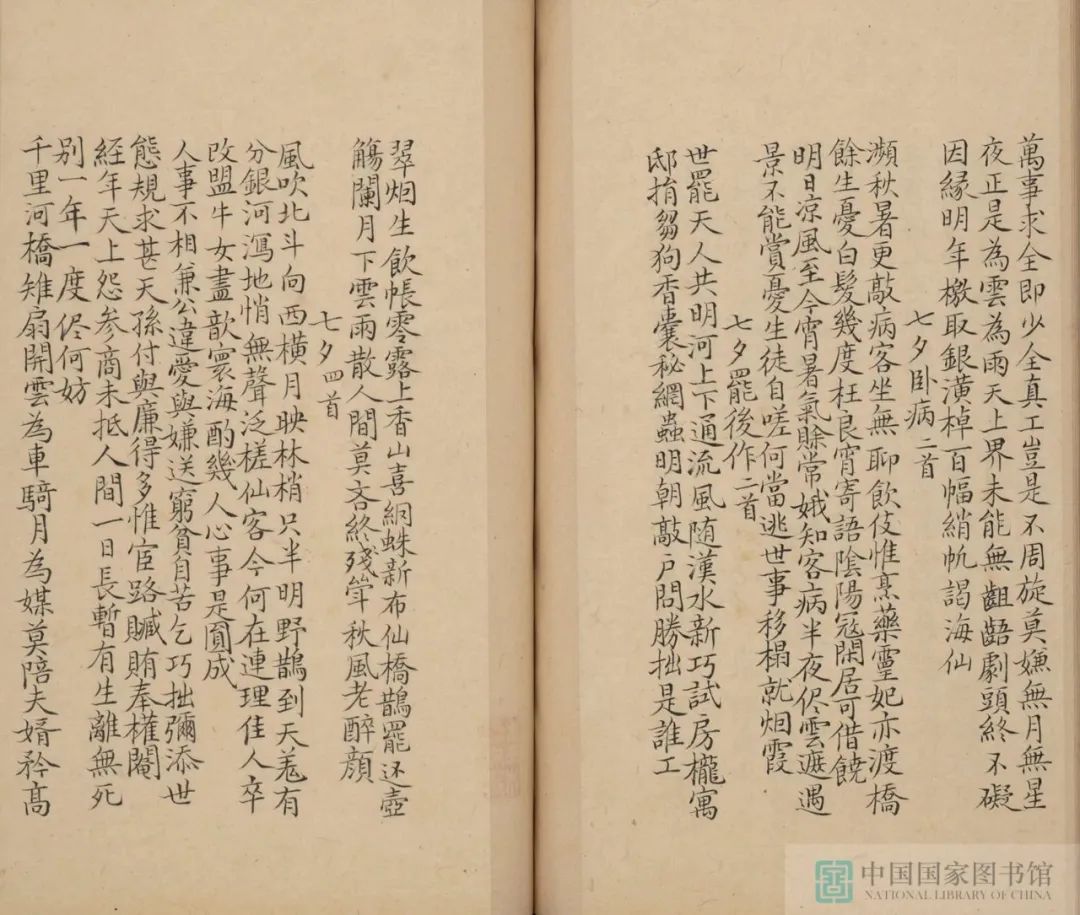 萬事求全即少全真工豈是不周旋莫嫌無月無星
夜正是為雲為雨天上界未能無齟齬劇頭終不礙
因縁明年檄取銀潢棹百幅綃帆謁海仙
七夕卧病二首
瀕秋暑更敲病客坐無聊飲伎惟烹藥靈妃亦渡橋
餘生憂白髮幾度枉良宵寄語陰陽冦閑居可借饒
明日凉風至今宵暑氣賖常娥知客病半夜侭雲遮遇
景不能賞憂生徒自嗟何當逃世事移榻就烟霞
七夕罷後作二首
世罷天人共明河上下通流風随漢水新巧試房櫳寓
邸捐芻狗香囊秘網蟲明朝敲戸問勝拙是誰工
翠烟生飲帳零露上香山喜絅蛛新布仙橋鵲罷还壺
觴闌月下雲雨散人間莫吝終殘筭秋風老醉顔
七夕四首
風吹北斗向西横月映林梢只半明野鵲到天羗有
分銀河瀉地悄無聲泛槎仙客今何在連理佳人卒
改盟牛女盡歆寰海酌幾人心事是圓成
人事不相兼公違愛與嫌送窮貧自苦乞巧拙彌添世
態規求甚天孫付與廉得多惟宦路贓賄奉權閹
經年天上怨参商未抵人間一日長暫有生離無死
别一年一度侭何妨
千里河橋雉扇開雲為車騎月為媒莫陪夫婿矜高
中国国家图书馆
NATIONAL LIBRARY OF CHINA